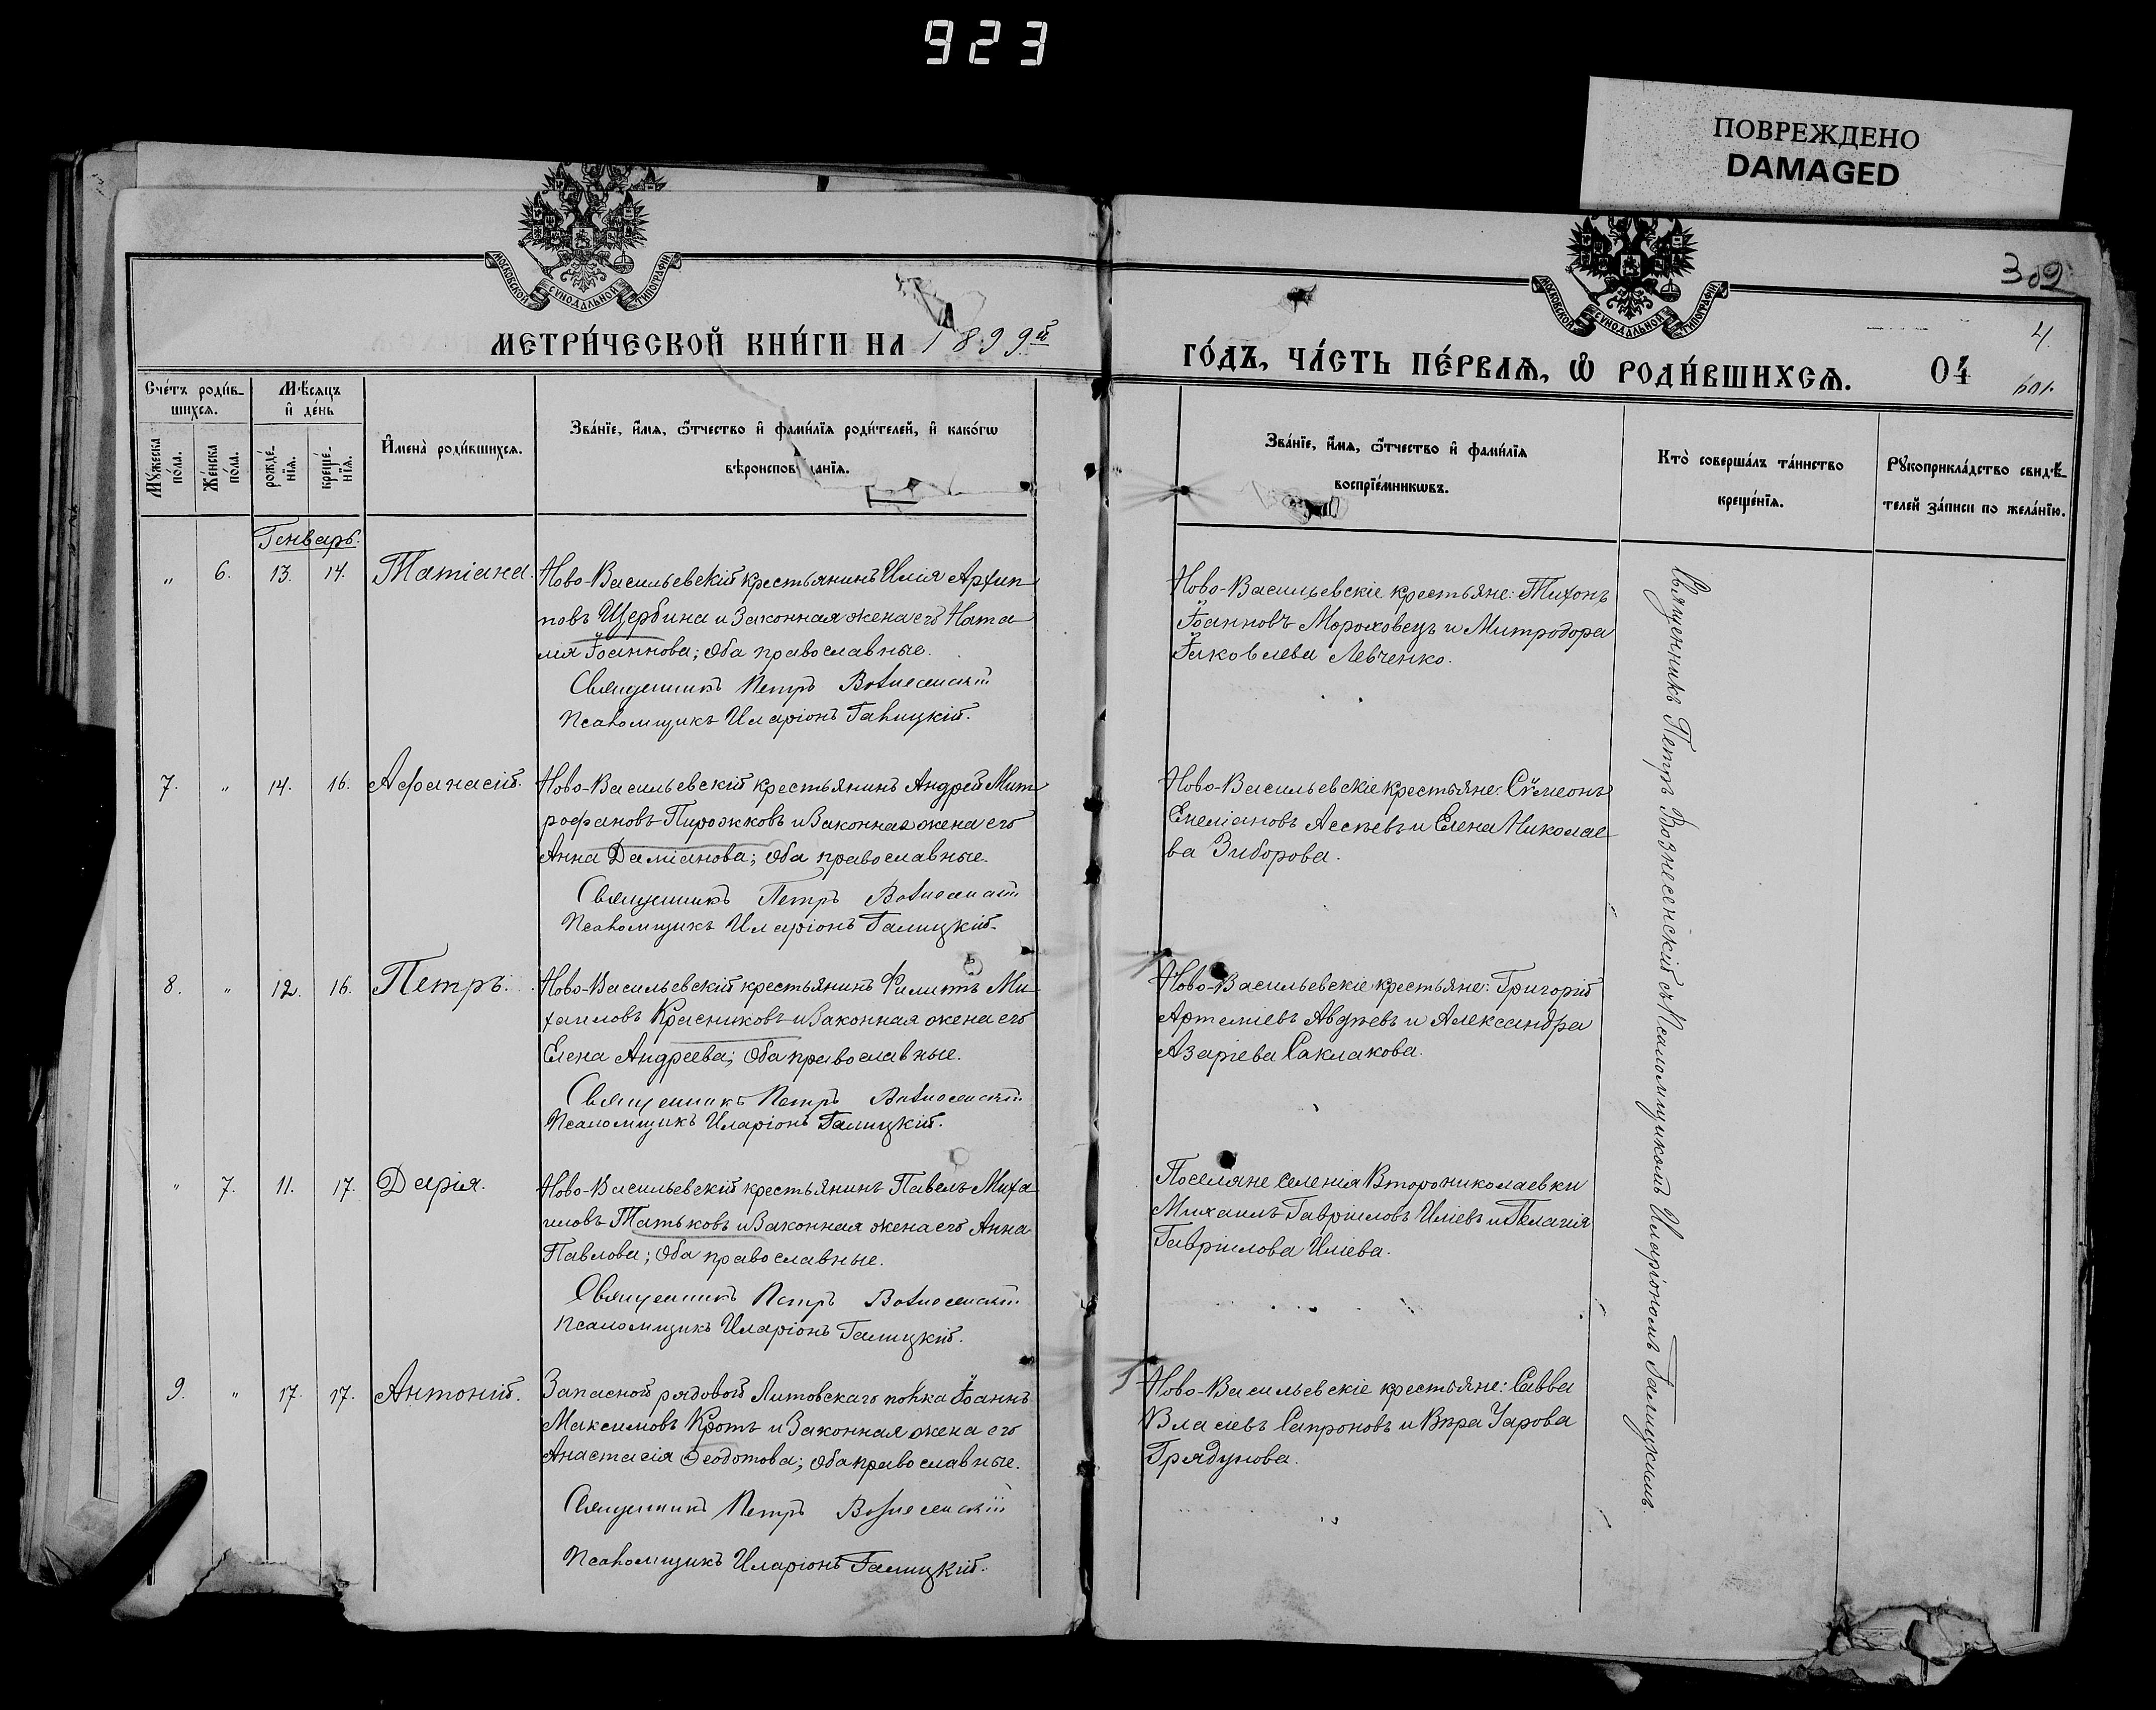 923
ПОВРЕЖДЕНО
DAMAGED
МОСКОВСКОЙ СѴНОДАЛЬНОЙ ТИПОГРАФІИ
МОСКОВСКОЙ СѴНОДАЛЬНОЙ ТИПОГРАФІИ
309
4.
МЕТРИ́ЧЕСКОЙ КНИ́ГИ НА 1899й
ГО́ДЪ, ЧА́СТЬ ПЕ́РВАѦ, Ѡ҆ РОДИ́ВШИХСѦ.
04
Сче́тъ роди́в-
шихсѧ.
Мꙋ́жеска по́ла.
Же́нска по́ла.
М҄ѣсѧцъ
и҆ де́нь
рожде́-
нїѧ.
креще́-
нїѧ.
И҆мена̀ роди́вшихсѧ.
Зва́нїе, и҆́мѧ, ѻ҆́тчество и҆ фами́лїѧ роди́телей, и҆ како́гѡ
вѣроиспов данїѧ.
Зва́нїе, и҆́мѧ, ѻ҆́тчество и҆ фами́лїѧ
воспрїе́мникѡвъ.
Кто̀ соверша́лъ та́инство
креще́нїѧ.
Рꙋкоприкла́дство свидѣ́-
телей за́писи по жела́нїю.
Генварь.
„ 6. 13. 14. Татіана.
Ново-Васильевскій крестьянинъ Илія Архип
повъ Щербина и законная жена его Ната
лія Іоаннова; оба православные.
Священникъ Петръ Вознесенскій
Псаломщикъ Иларіонъ Галицкій.
Ново-Васильевскіе крестьяне: Тихонъ
Іоанновъ Мороховецъ и Митродора
Іаковлева Левченко.
7. „ 14. 16. Афанасій.
Ново-Васильевскій крестьянинъ Андрей Мит
рофановъ Пирожковъ и законная жена его
Анна Даміанова; оба православные.
Священникъ Петръ Вознесенскій
Псаломщикъ Иларіонъ Галицкій.
Ново-Васильевскіе крестьяне: Сѵмеонъ
Емеліановъ Асѣевъ и Елена Николае
ва Зиборова.
8. „ 12. 16. Петръ.
Ново-Васильевскій крестьянинъ Филиппъ Ми
хаиловъ Красниковъ и законная жена его
Елена Андреева; оба православные.
Священникъ Петръ Вознесенскій
Псаломщикъ Иларіонъ Галицкій.
Ново-Васильевскіе крестьяне: Григорій
Артеміевъ Авдѣевъ и Александра
Азаріева Саклакова.
„ 7. 11. 17. Дарія.
Ново-Васильевскій крестьянинъ Павелъ Миха
иловъ Татьковъ и законная жена его Анна
Павлова; оба православные.
Священникъ Петръ Вознесенскій
Псаломщикъ Иларіонъ Галицкій.
Поселяне селенія Второниколаевки
Михаилъ Гавріиловъ Иліевъ и Пелагія
Гавріилова Иліева.
9. „ 17. 17. Антоній.
Запасной рядовой Литовскаго полка Іоаннъ
Максимовъ Кротъ и законная жена его
Анастасія Ѳеодотова; оба православные.
Священникъ Петръ Вознесенскій
Псаломщикъ Иларіонъ Галицкій.
Ново-Васильевскіе крестьяне: Савва
Власіевъ Сапроновъ и Вѣра Уарова
Грядунова.
Священникъ Петръ Вознесенскій съ Псаломщикомъ Иларіономъ Галицкимъ.